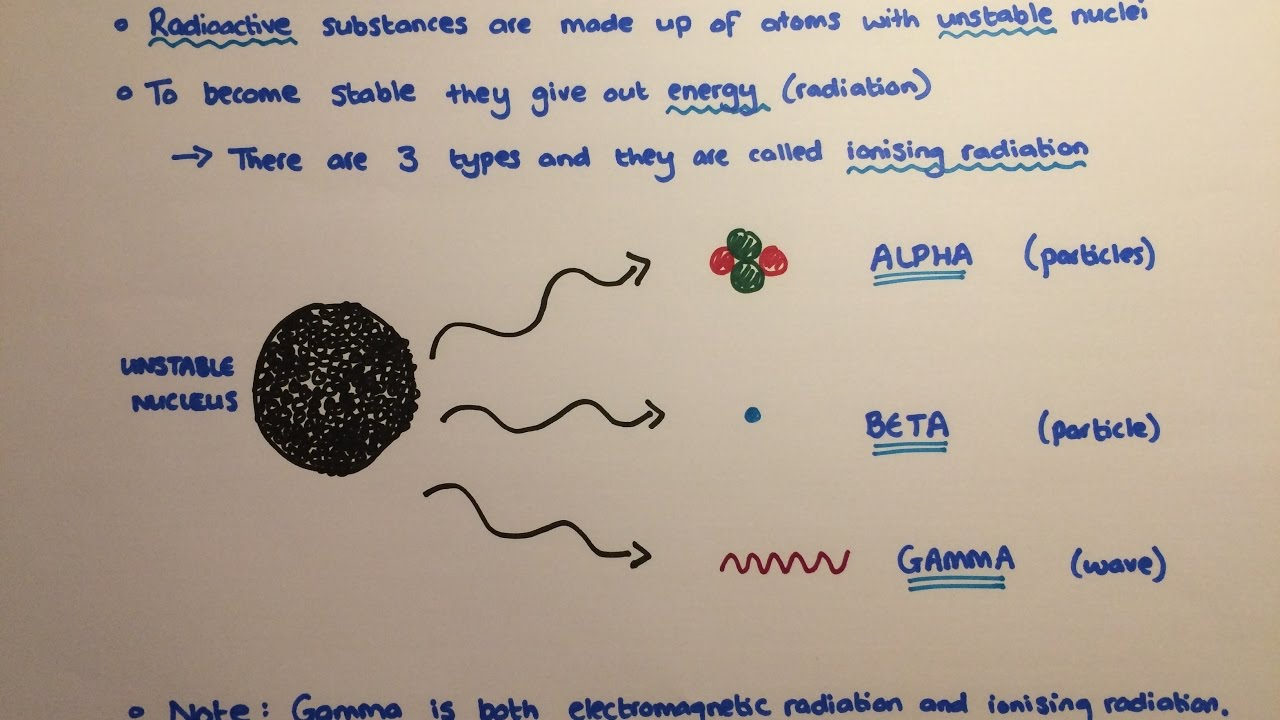 • Radioactive substances are made up of atoms with unstable nuclei
• To become stable they give out energy (radiation)
→ There are 3 types and they are called ionising radiation
ALPHA (particles)
UNSTABLE
NUCLEUS
BETA (particle)
GAMMA (wave)
• Note: Gamma is both electromagnetic radiation and ionising radiation.